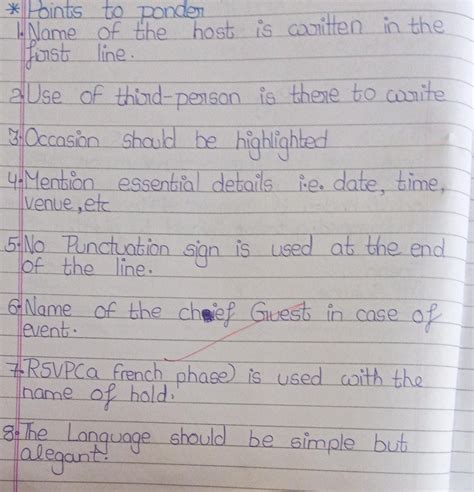 * Points to ponder
1. Name of the host is written in the
first line.
2. Use of third-person is there to write
3. Occasion should be highlighted
4. Mention essential details i.e. date, time,
venue, etc
5. No Punctuation sign is used at the end
of the line.
6. Name of the chief Guest in case of
event.
7. RSVP(a french phase) is used with the
name of hold.
8. The Language should be simple but
alegant.